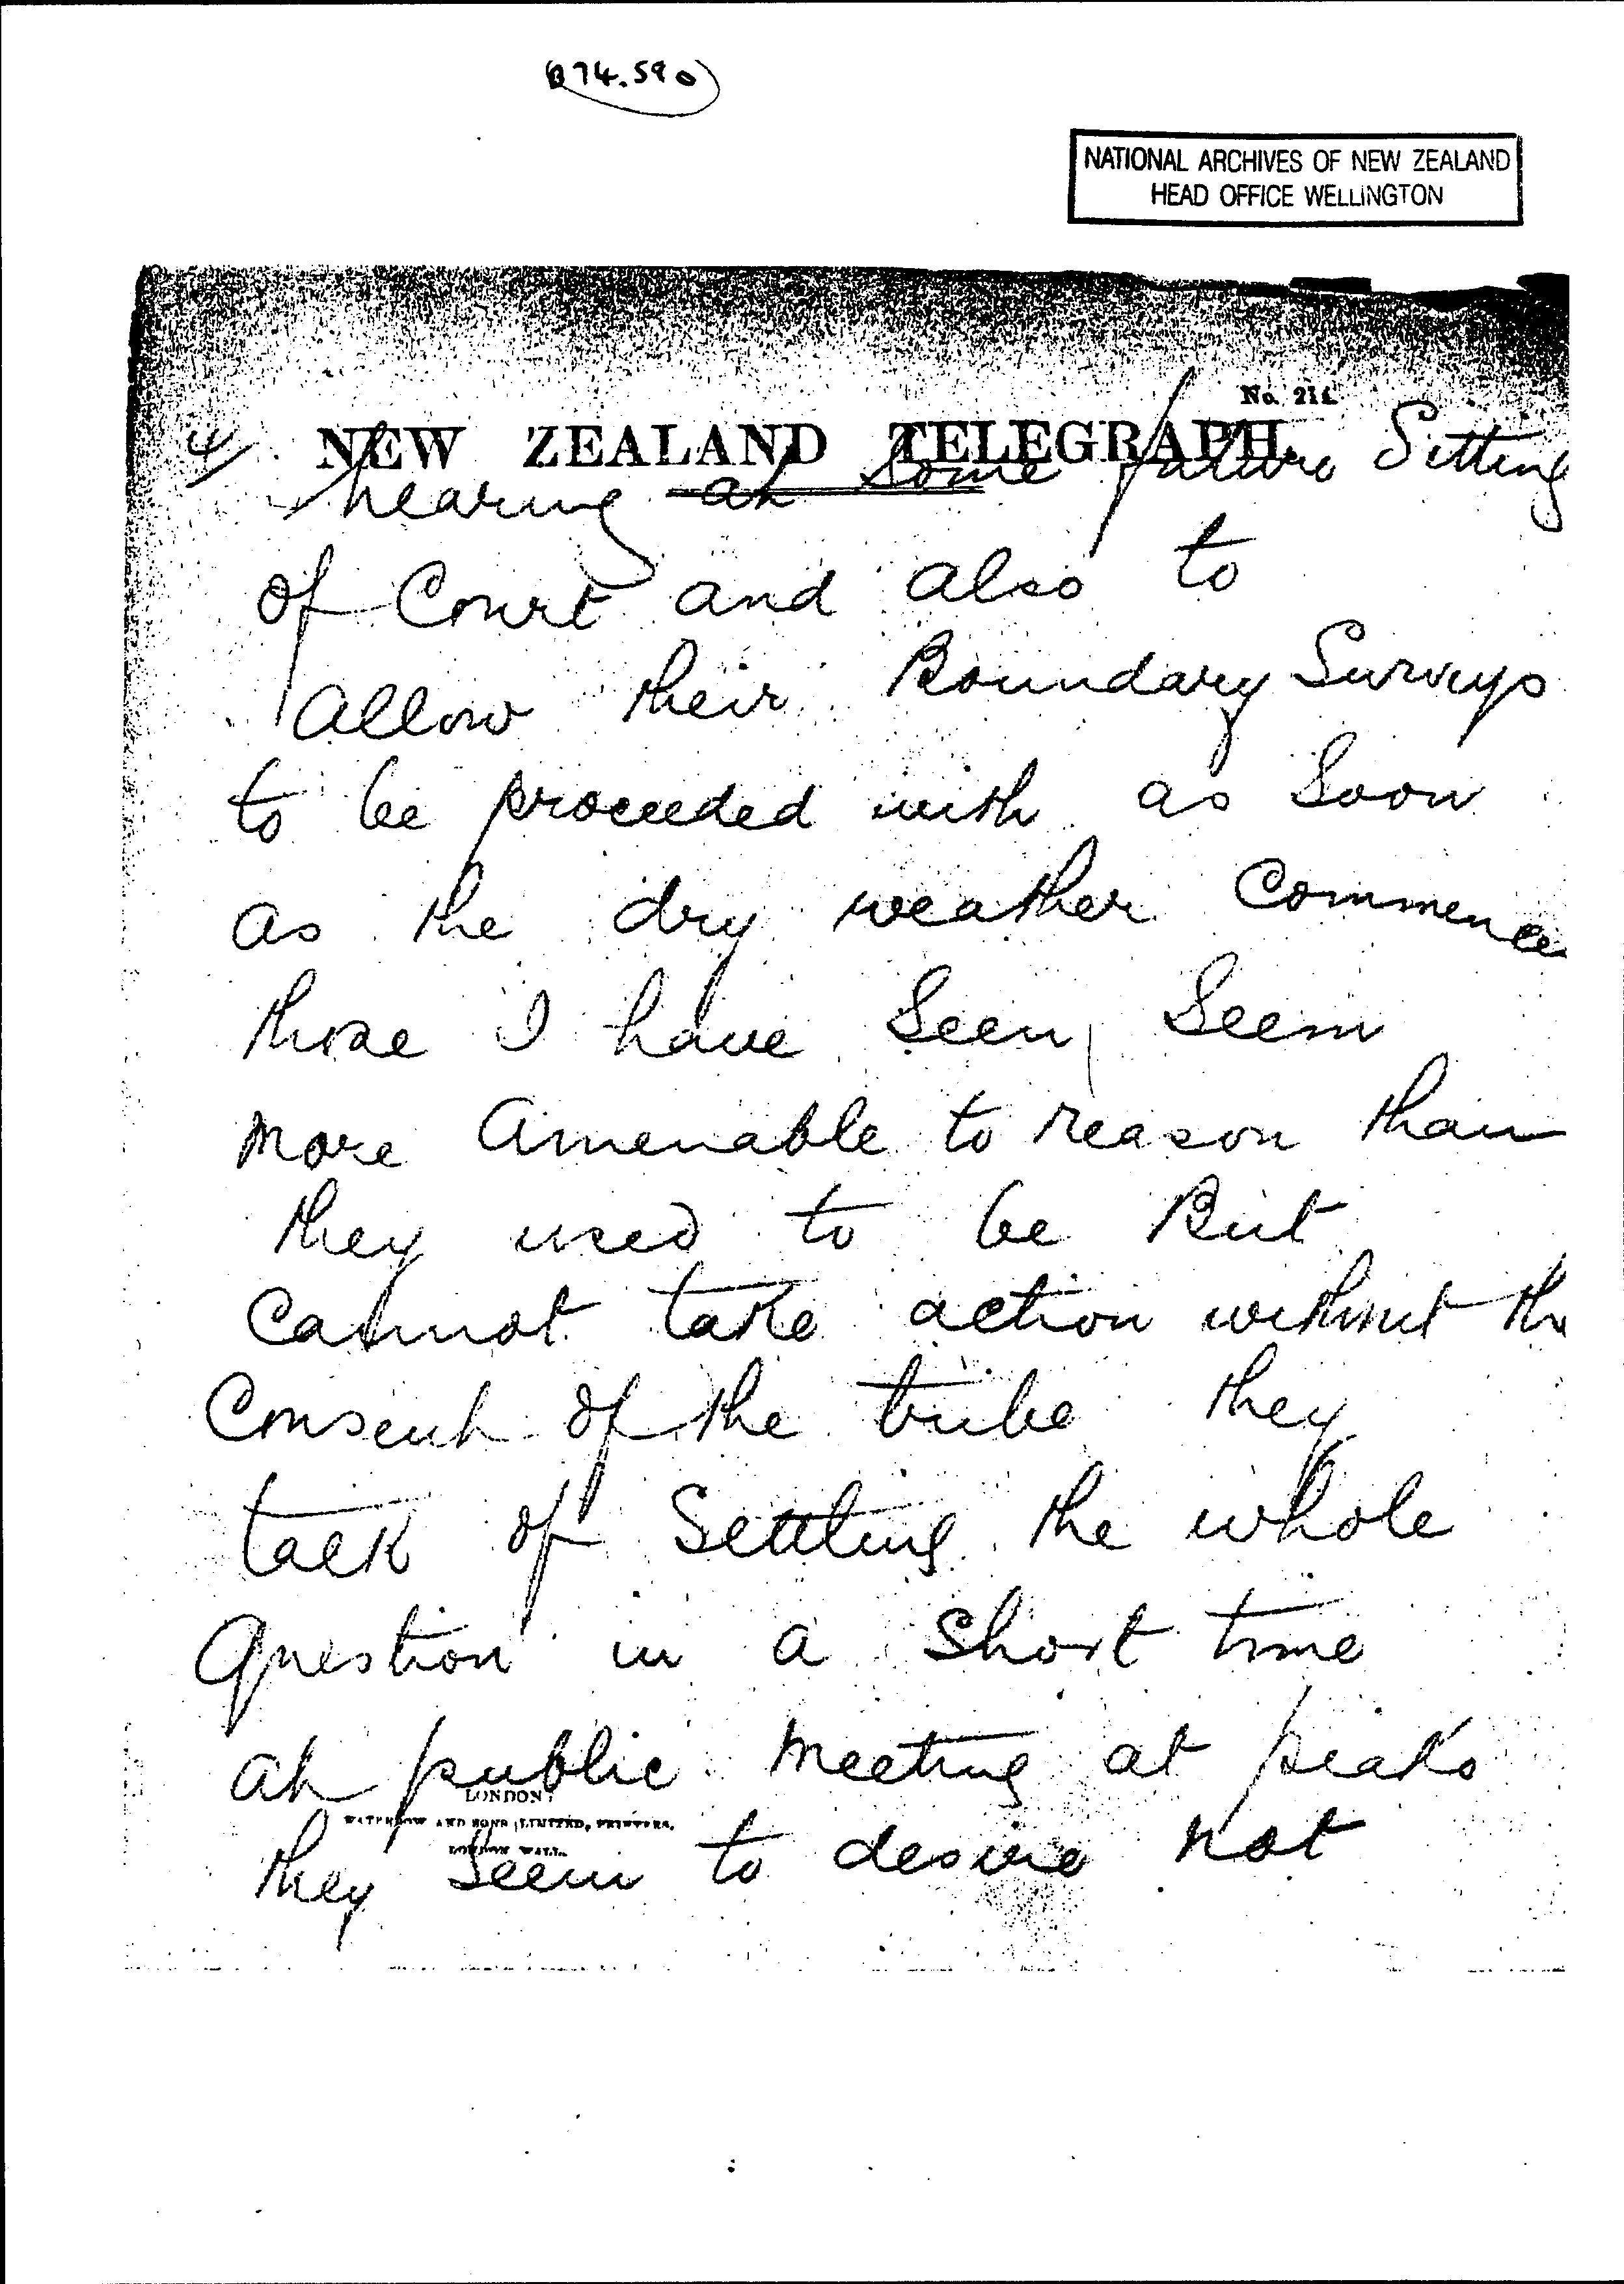 074.590
NATIONAL ARCHIVES OF NEW ZEALAND
HEAD OFFICE WELLINGTON
No. 214.
4/ NEW ZEALAND TELEGRAPH.
hearing at some future Sitting
of Court and also to
allow their Boundary Surveys
to be proceeded with as Soon
as the dry weather Commence
those I have Seen Seem
more amenable to reason than
they used to be But
Cannot take action without the
Consent of the tribe they
talk of Settling the whole
question in a Short time
at public meeting at
LONDON:
WATERLOW AND SONS LIMITED, PRINTERS,
LONDON WALL.
they Seem to desire not